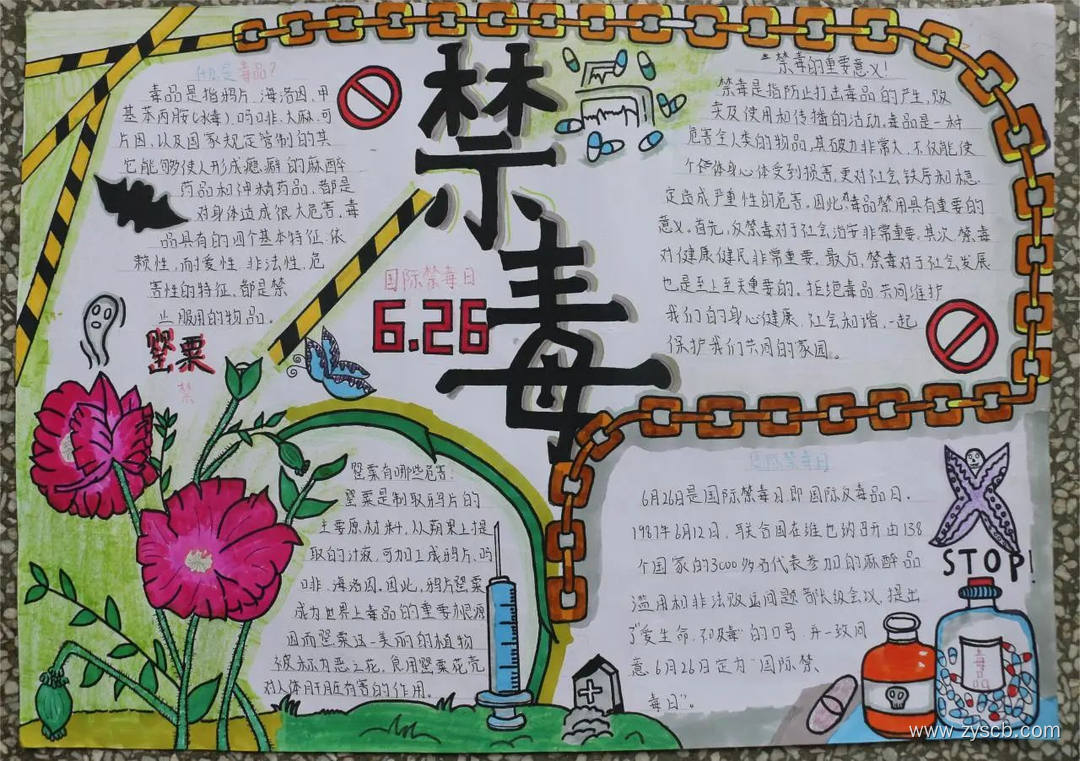 什么是毒品?
毒品是指鸦片、海洛因、甲
基苯丙胺(冰毒)、吗啡、大麻、可
卡因,以及国家规定管制的其
它能够使人形成瘾癖的麻醉
药品和神精药品,都是
对身体造成很大危害,毒
品具有的四个基本特征,依
赖性,耐受性,非法性,危
害性的特征,都是禁
止服用的物品。
罂粟
禁
禁毒
国际禁毒日
6.26
二禁毒的重要意义!
禁毒是指防止打击毒品的产生,贩
卖及使用和传播的活动,毒品是一种
危害全人类的物品,其破力非常大,不仅能使
个体身心体受到损害,更对社会秩序和稳
定造成严重性的危害,因此,毒品禁用具有重要的
意义,首先,反禁毒对于社会治安非常重要,其次,禁毒
对健康健民非常重要,最后,禁毒对于社会发展
也是至上至关重要的,拒绝毒品共同维护
我们的身心健康,社会和谐,一起
保护我们共同的家园。
罂粟有哪些危害?
罂粟是制取鸦片的
主要原材料,从蒴果上提
取的汁液,可加工成鸦片、吗
啡、海洛因,因此,鸦片罂粟
成为世界上毒品的重要根源
因而罂粟这一美丽的植物
被称为恶之花,食用罂粟花壳
对人体肝脏有害的作用。
国际禁毒日
6月26日是国际禁毒日,即国际反毒品日,
1987年6月12日,联合国在维也纳召开由138
个国家的3000多名代表参加的麻醉品
滥用和非法贩运问题部长级会议,提出
了"爱生命,不吸毒"的口号,并一致同
意6月26日定为"国际禁
毒日"。
STOP!
毒品
www.zyscb.com